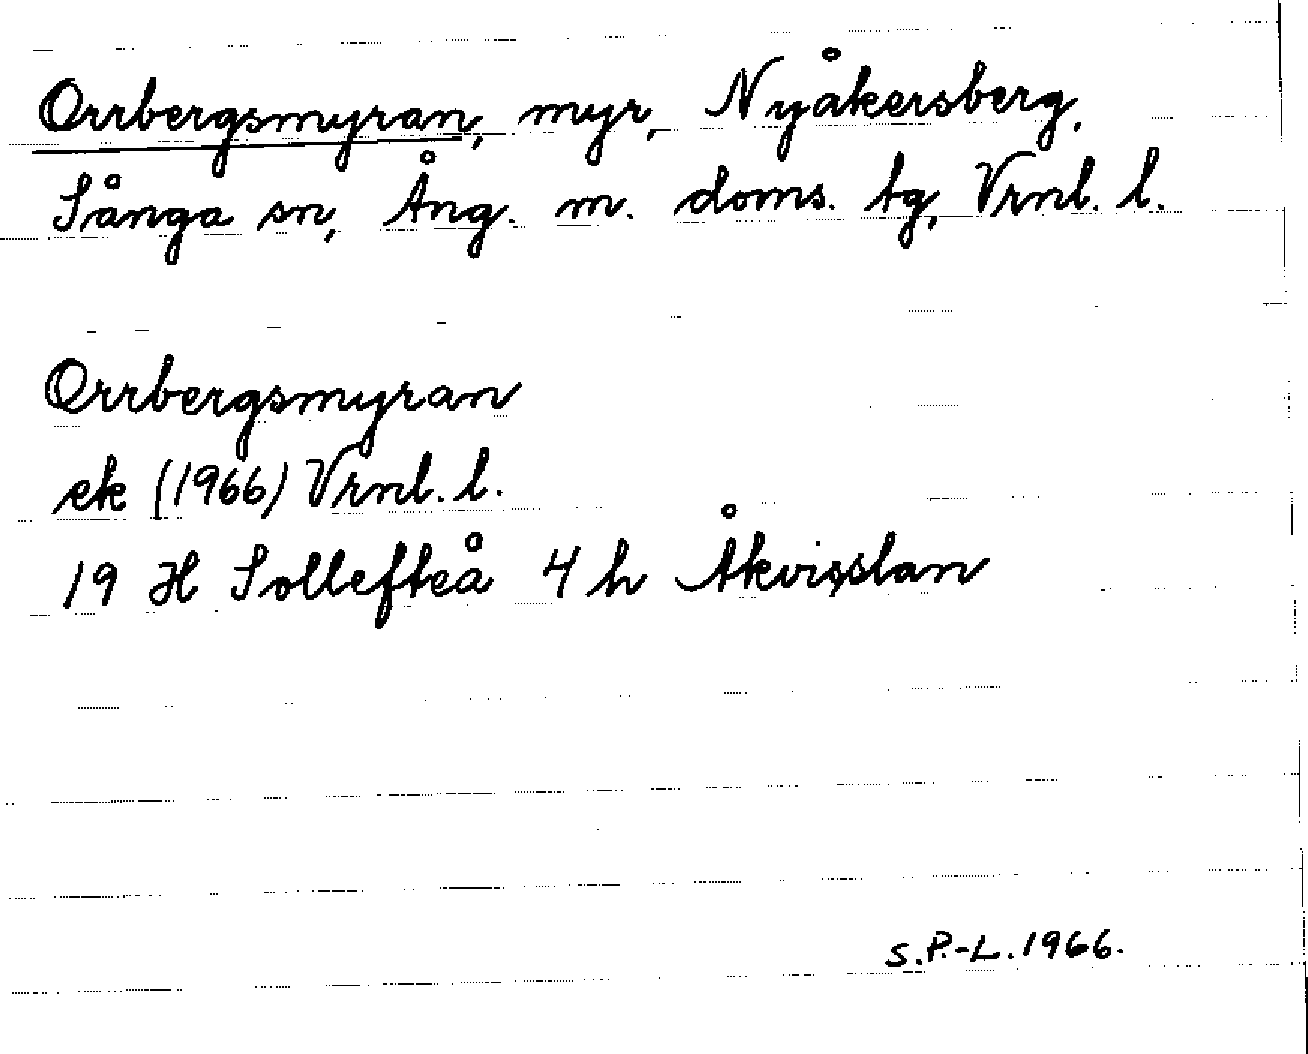 Orrbergsmyran, myr, Nyåkersberg,
Sånga sn, Ång. m. doms. tg, Vrnl. l.
Orrbergsmyran
ek (1966) Vrnl. l.
19 H Sollefteå 4 h Åkvisslan
S.P.-L. 1966.